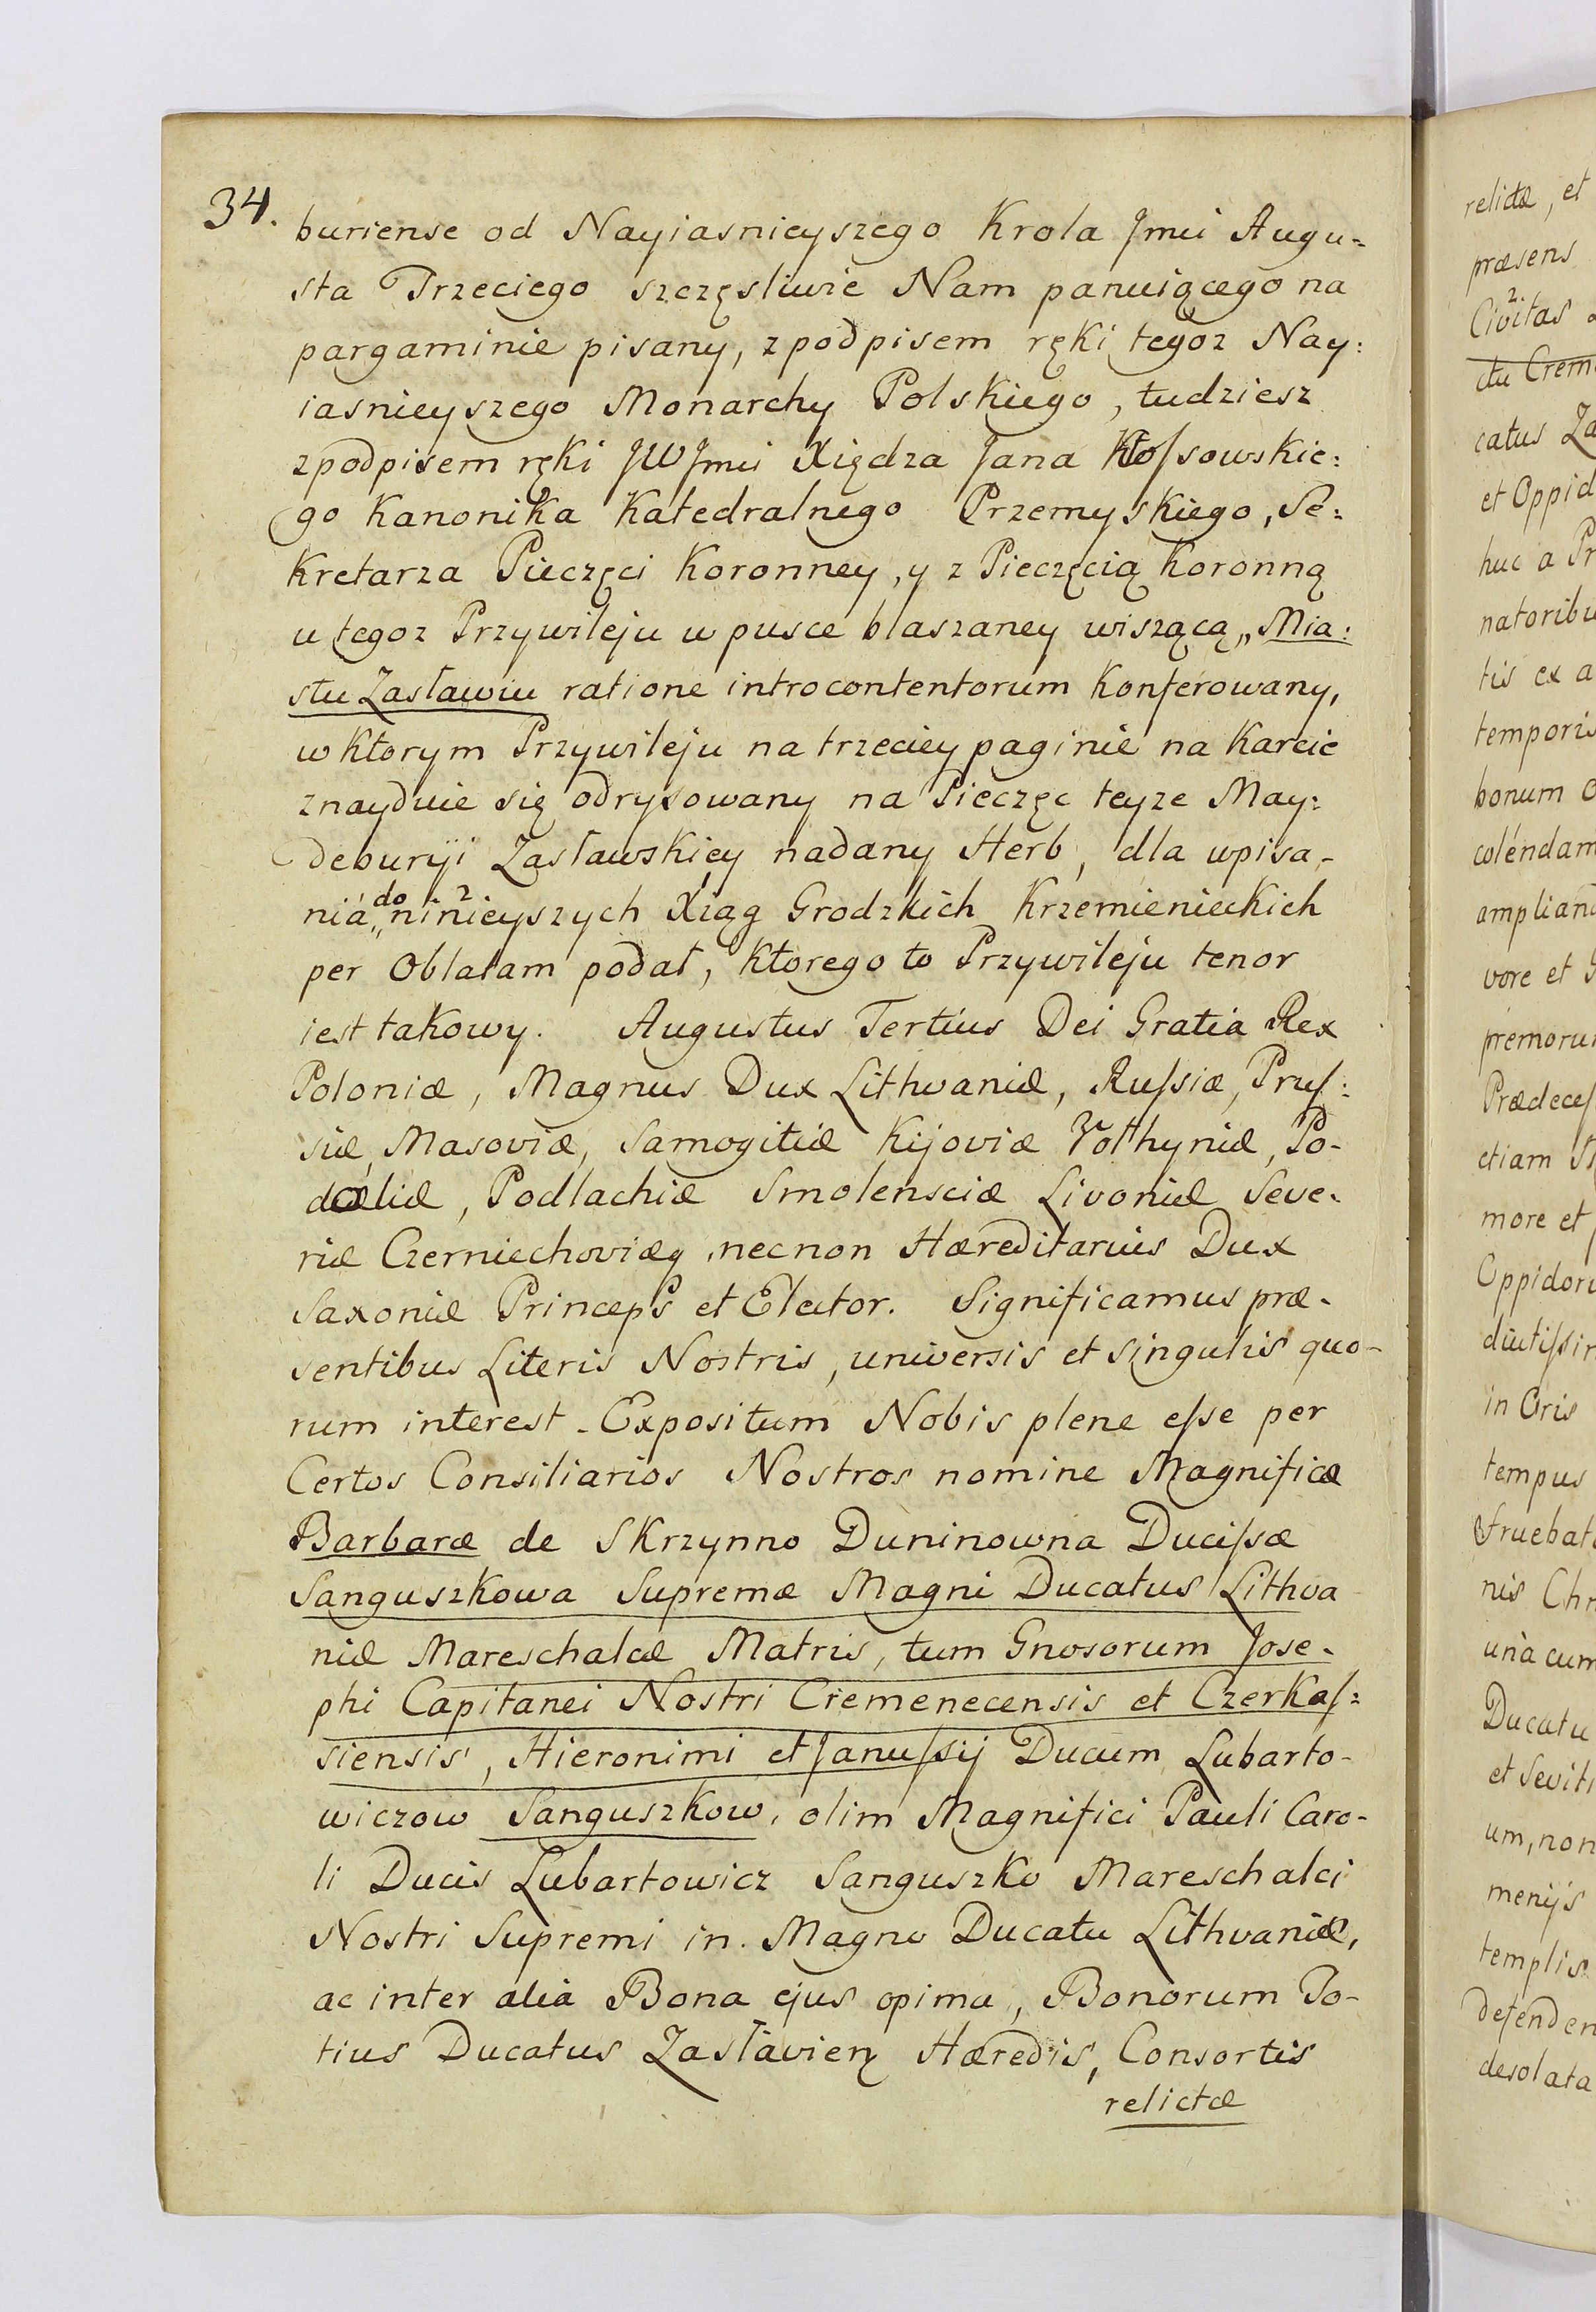 34.
buriense od Nayiasnieyszego Krola Jmci Augu=
sta Trzeciego szczęsliwie Nam panuiącego na
pargaminie pisany, z podpisem ręki tegoz Nay:
iasnieyszego Monarchy Polskiego, tudziesz
z podpisem ręki JW Jmci Xiędza Jana Kłoſsowskie:
go Kanonika Katedralnego Przemyskiego, Se:
kretarza Pieczęci Koronney, y z Pieczęcią Koronną
u tegoz Przywileju w pusce blaszaney wiszącą „ Mia:
stu Zasławiu ratione introcontentorum konferowany,
w ktorym Przywileju na trzeciey paginie na karcie
znayduie się odrysowany na Pieczęc teyze May:
deburyi Zasławskiey nadany Herb, dla wpisa-
nia „do ninieyszych Xiąg Grodzkich Krzemienieckich
per Oblatam podał, ktorego to Przywileju tenor
iest takowy. Augustus Tertius Dei Gratia Rex
Poloniæ, Magnus Dux Lithvaniæ, Ruſsiæ, Pruſ:
siæ, Masoviæ, Samogitiæ Kijoviæ Volhyniæ, Po-
doliæ, Podlachiæ Smolensciæ Livoniæ Seve-
riæ Czerniechoviæq, necnon Hæreditarius Dux
Saxoniæ Princeps et Elector. Significamus præ-
sentibus Literis Nostris, universis et singulis quo-
rum interest. Expositum Nobis plene eſse per
Certos Consiliarios Nostros nomine Magnificæ
Barbaræ de Skrzynno Duninowna Duciſsæ
Sanguszkowa Supremæ Magni Ducatus Lithva
niæ Mareschalcæ Matris, tum Gnosorum Jose-
phi Capitanei Nostri Cremenecensis et Czerkaſ:
siensis, Hieronimi et Januſsij Ducum Lubarto-
wiczow Sanguszkow, olim Magnifici Pauli Caro-
li Ducis Lubartowicz Sanguszko Mareschalci
Nostri Supremi in Magno Ducatu Lithvaniæ,
ac inter alia Bona ejus opima, Bonorum To-
tius Ducatus Zaslavien Hæredis, Consortis
relictæ
relictæ, et
præsens
Civitas
ctu Crem
catus Za
et Oppid
huc a Pr
natoribu
tis ex a
temporis
bonum o
colendam
ampliand
vore et
premoru
Prædeceſ
etiam
more et
Oppidoru
diutiſsir
in Oris
tempus
fruebat
nis Chr
una cum
Ducatu
et Seviti
um, non
menijs
templis
defenden
desolata